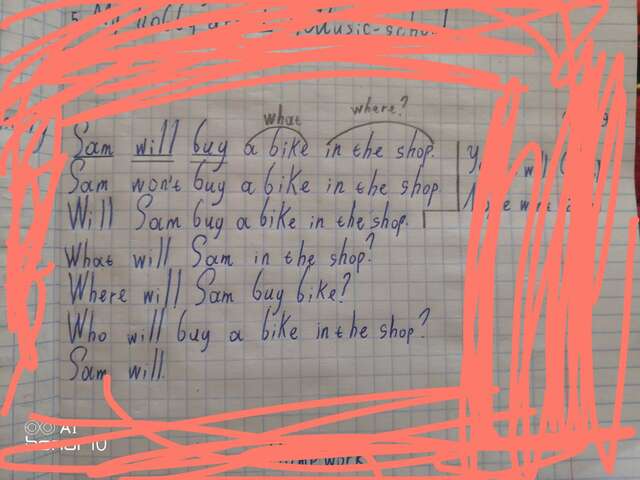 Music-school
what where?
Sam will buy a bike in the shop.
Sam won't buy a bike in the shop
Will Sam buy a bike in the shop.
What will Sam in the shop?
Where will Sam buy bike?
Who will buy a bike in the shop?
Sam will.
AI
work